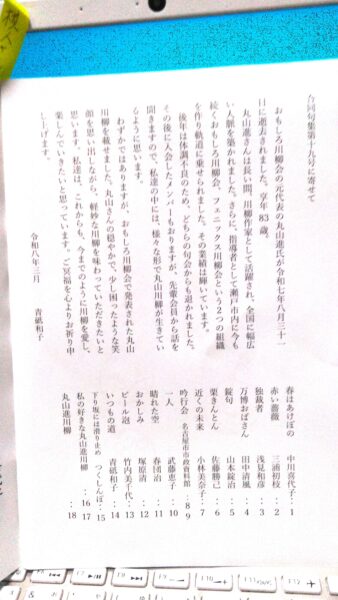 合同句集第十九号に寄せて
おもしろ川柳会の元代表の丸山進氏が令和七年八月三十一
日に逝去されました。享年83歳。
丸山進さんは長い間、川柳作家として活躍され、全国に幅広
い人脈を築かれました。さらに、指導者として瀬戸市内に今も
続くおもしろ川柳会、フェニックス川柳会という2つの組織
を作り軌道に乗せられました。その業績は輝いています。
後年は体調不良のため、どちらの句会からも退かれました。
その後に入会したメンバーもおりますが、先輩会員から話を
聞きますので、私達の中には、様々な形で丸山川柳が生きてい
るように思います。
わずかではありますが、おもしろ川柳会で発表された丸山
川柳を載せました。丸山さんの穏やかで、少し困ったような笑
顔を思い出しながら、軽妙な川柳を味わっていただきたいと
思います。私達は、これからも、今までのように川柳を愛し、
楽しんでいきたいと思っています。ご冥福を心よりお祈り申
し上げます。
令和八年三月
青砥和子
春はあけぼの 中川喜代子：1
赤い薔薇 三浦初枝：2
独裁者 浅見和彦：3
万博おばさん 田中清風：4
錠句 山本錠治：5
栗きんとん 佐藤勝己：6
近くの未来 小林美奈子：7
吟行会 名古屋市市政資料館：8 9
一人 武藤恵子：10
晴れた空 春団治：11
おかしみ 塚原清：12
ビール泡 竹内美千代：13
いつもの道 青砥和子：14
下り坂には滑り止め つくしんぼ：15
私の好きな丸山進川柳：16 17
丸山進川柳：18